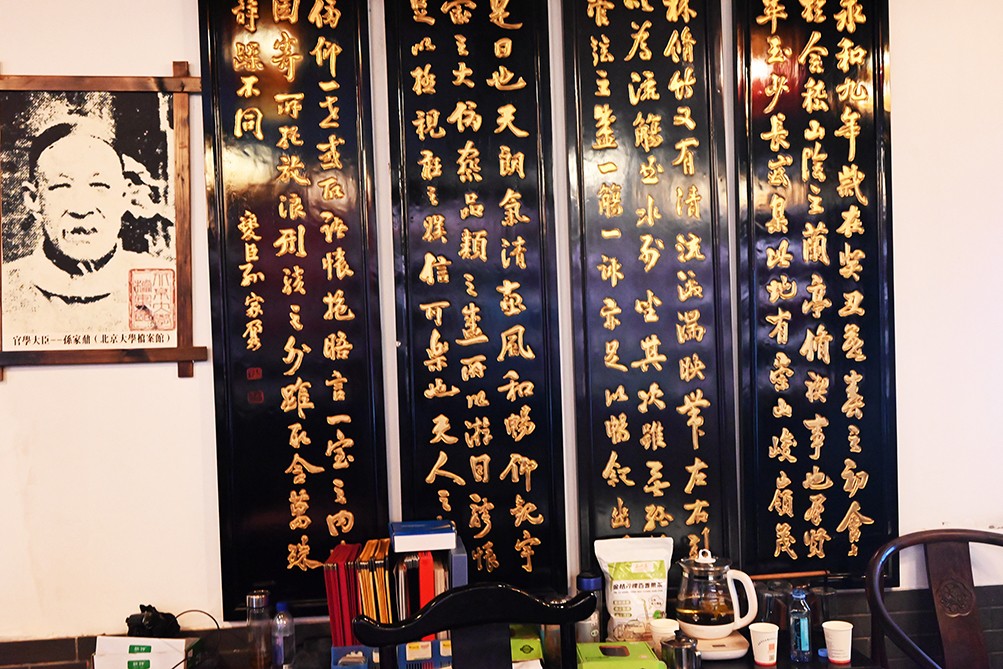 永和九年歲在癸丑暮春之初會
於會稽山陰之蘭亭脩禊事也群賢
畢至少長咸集此地有崇山峻嶺茂
林脩竹又有清流激湍映帶左右引
以為流觴曲水列坐其次雖無絲
管弦之盛一觴一詠亦足以暢敘幽
是日也天朗氣清惠風和暢仰觀宇
宙之大俯察品類之盛所以遊目騁懷
足以極視聽之娛信可樂也夫人之
俯仰一世或取諸懷抱晤言一室之內
因寄所託放浪形骸之外雖取舍萬殊
靜躁不同
燮臣孫家鼐
官學大臣--孫家鼐（北京大學檔案館）